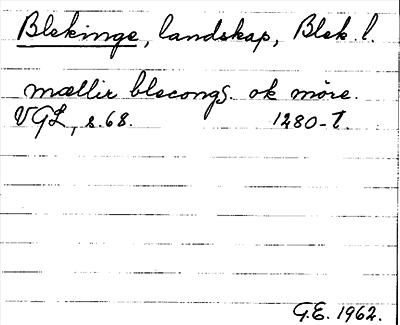 Blekinge, landskap, Blek. l.
mællir blecongs. ok möre.
VGL, s. 68. 1280-t.
G.E. 1962.